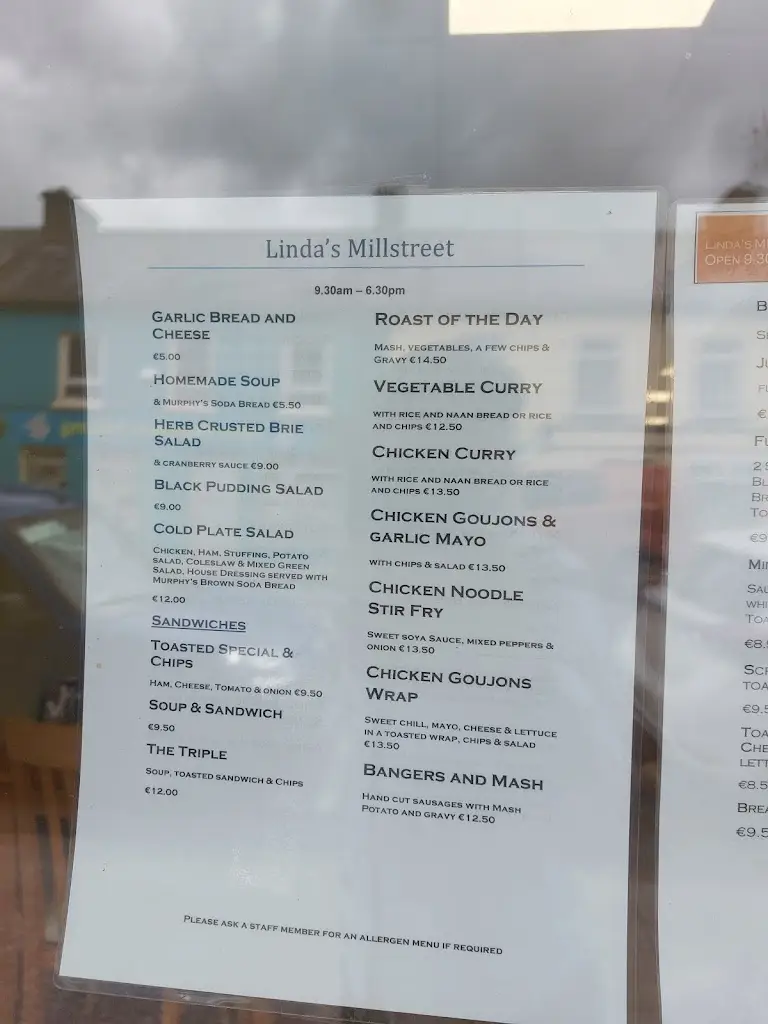 Linda's Millstreet
9.30am – 6.30pm
Garlic Bread and
Cheese
€5.00
Homemade Soup
& Murphy's Soda Bread €5.50
Herb Crusted Brie
Salad
& cranberry sauce €9.00
Black Pudding Salad
€9.00
Cold Plate Salad
Chicken, Ham, Stuffing, Potato
salad, Coleslaw & Mixed Green
Salad, House Dressing served with
Murphy's Brown Soda Bread
€12.00
Sandwiches
Toasted Special &
Chips
Ham, Cheese, Tomato & onion €9.50
Soup & Sandwich
€9.50
The Triple
Soup, toasted sandwich & Chips
€12.00
Roast of the Day
Mash, vegetables, a few chips &
Gravy €14.50
Vegetable Curry
with rice and naan bread or rice
and chips €12.50
Chicken Curry
with rice and naan bread or rice
and chips €13.50
Chicken Goujons &
garlic Mayo
with chips & salad €13.50
Chicken Noodle
Stir Fry
Sweet soya Sauce, mixed peppers &
onion €13.50
Chicken Goujons
Wrap
Sweet chill, mayo, cheese & lettuce
in a toasted wrap, chips & salad
€13.50
Bangers and Mash
Hand cut sausages with Mash
Potato and gravy €12.50
Please ask a staff member for an allergen menu if required
Linda's
Open